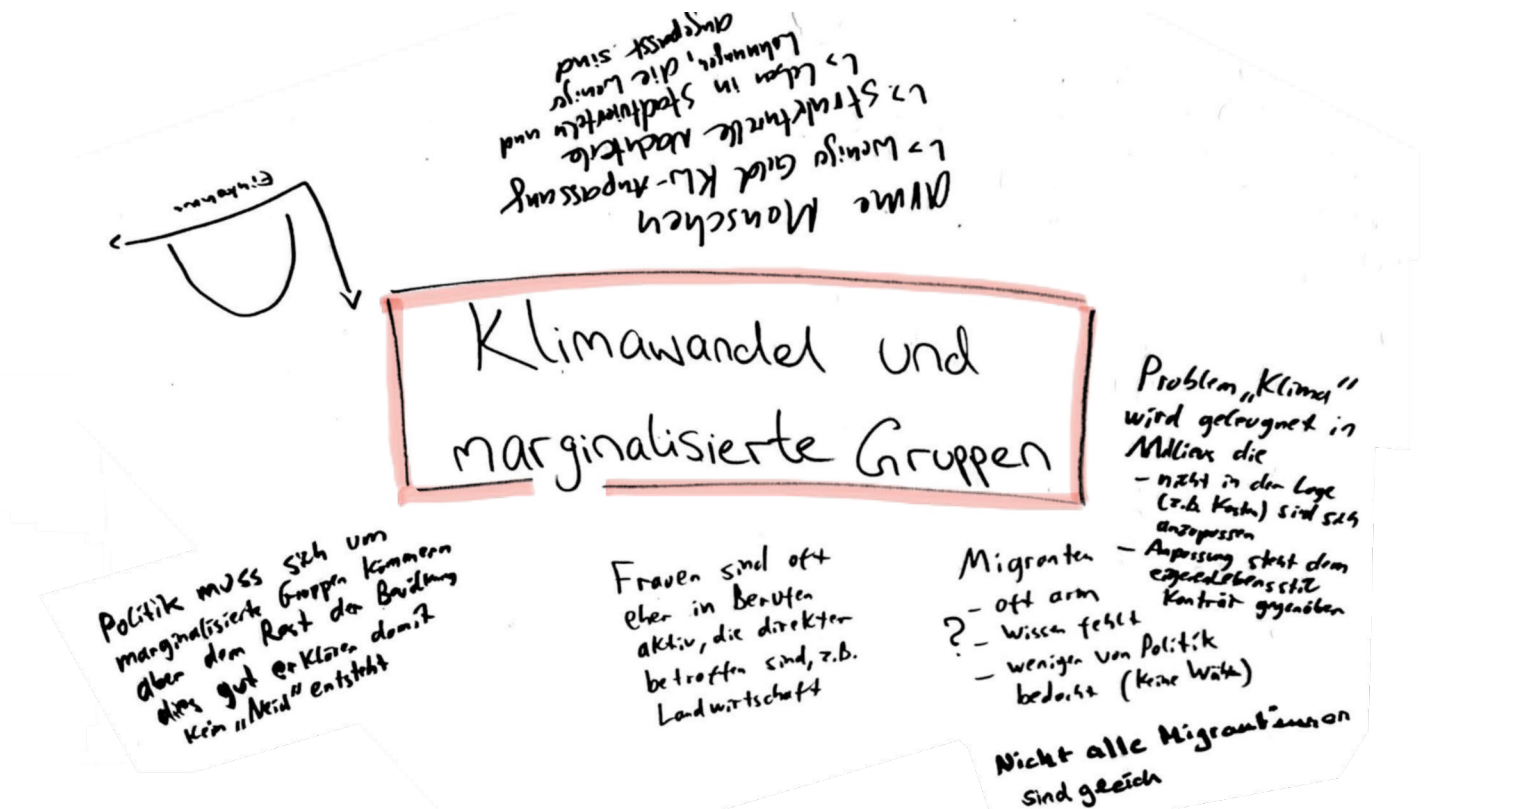 arme Menschen
↳ weniger Geld KW-Anpassung
↳ Strukturelle Nachteile
↳ Leben in Stadtvierteln und
Wohnungen, die weniger
angepasst sind
Einkommen
Klimawandel und
marginalisierte Gruppen
Problem „Klima“
wird geleugnet in
Milieus die
- nicht in der Lage
(z.B. Kosten) sind sich
anzupassen
- Anpassung steht dem
eigenen Lebensstil
Konträr gegenüber
Politik muss sich um
marginalisierte Gruppen kümmern
aber dem Rest der Bevölkerung
dies gut erklären damit
kein „Neid“ entsteht
Frauen sind oft
eher in Berufen
aktiv, die direkter
betroffen sind, z.B.
Landwirtschaft
Migranten
- oft arm
? - Wissen fehlt
- weniger von Politik
bedacht (keine Wähler)
Nicht alle Migrant*innen
sind gleich